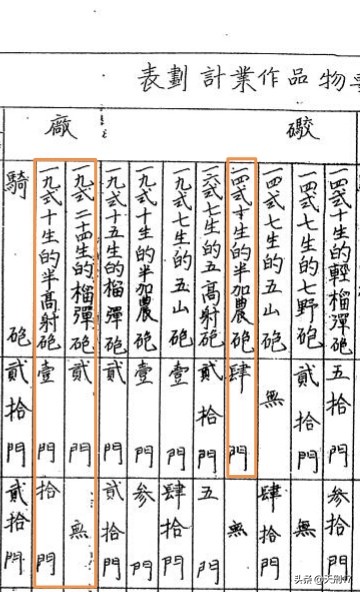 物品作業計劃表
礮廠
一四式十生的輕榴彈砲 五拾門 參拾門
一四式七生的七野砲 貳拾門 無
一四式七生的五山砲 無 肆拾門
一四式十生的半加農砲 肆門 無
一六式七生的五高射砲 貳拾門 五門
一九式七生的五山砲 壹門 肆拾門
一九式十生的半加農砲 壹門 參門
一九式十五生的榴彈砲 貳門 貳拾門
一九式二十四生的榴彈砲 貳門 無
一九式十生的半高射砲 壹門 拾門
騎砲 貳拾門 貳拾門
头条